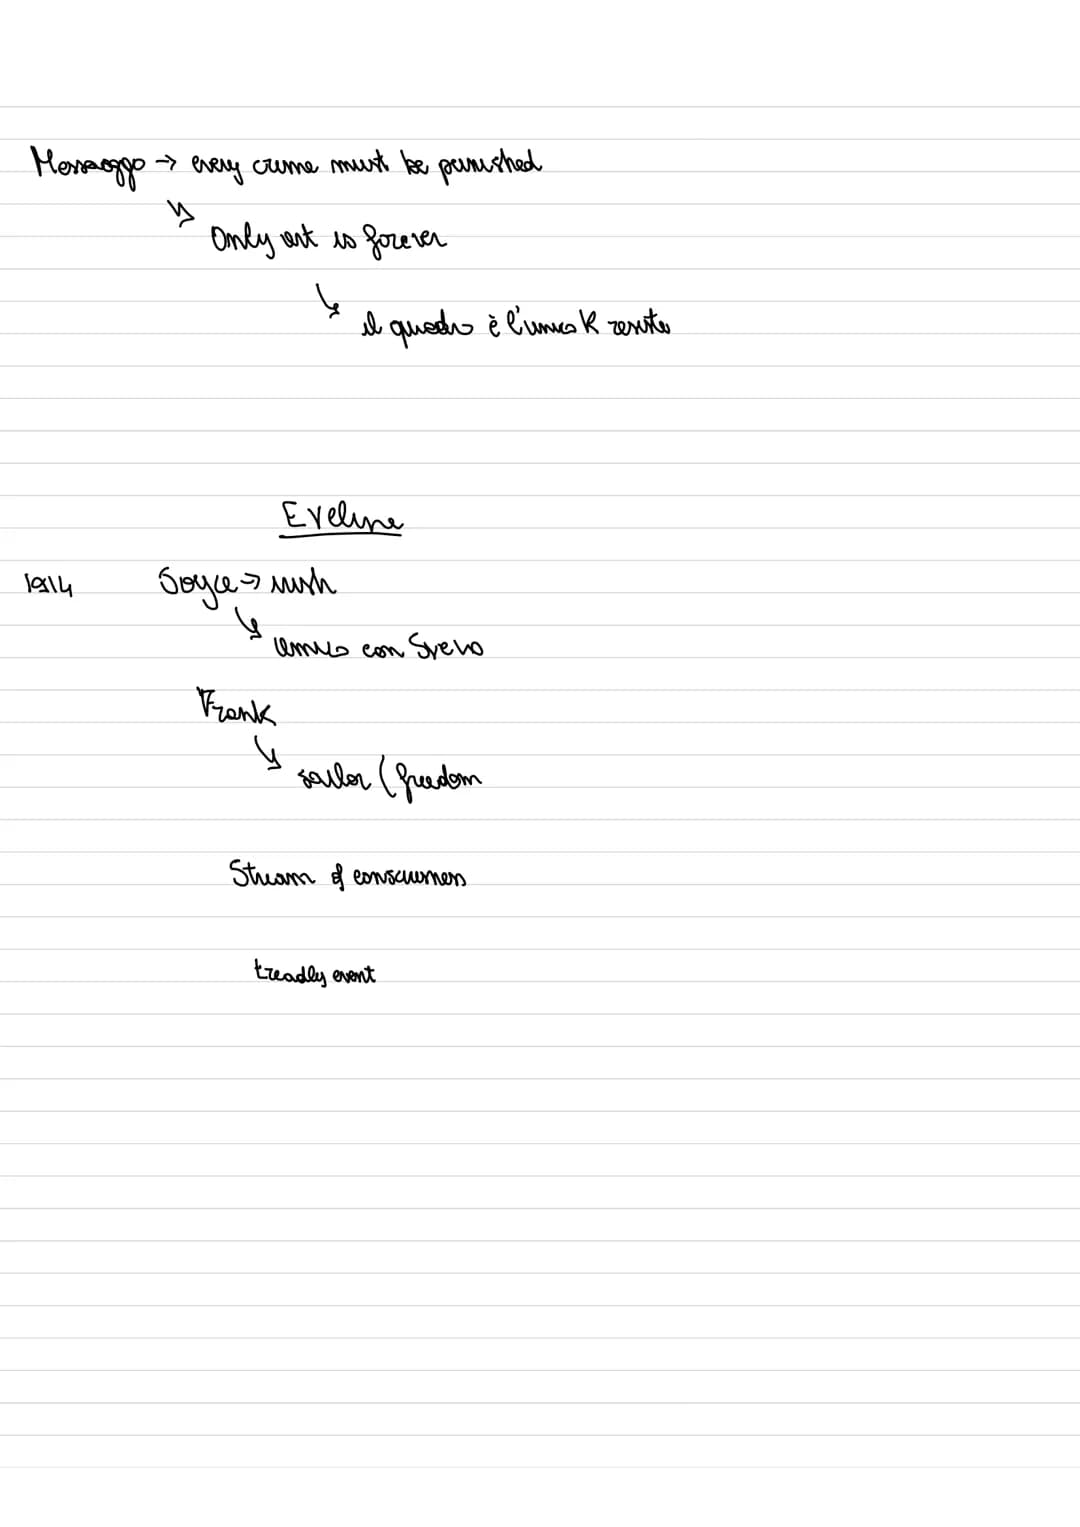 Messaggio → every crime must be punished
↳ Only art is forever
↳ il quadro è l'unico K resiste
Eveline
1914 Joyce → irish
↳ amico con Svevo
Frank
↳ sailor (freedom
Stream of consciusness
treadly event